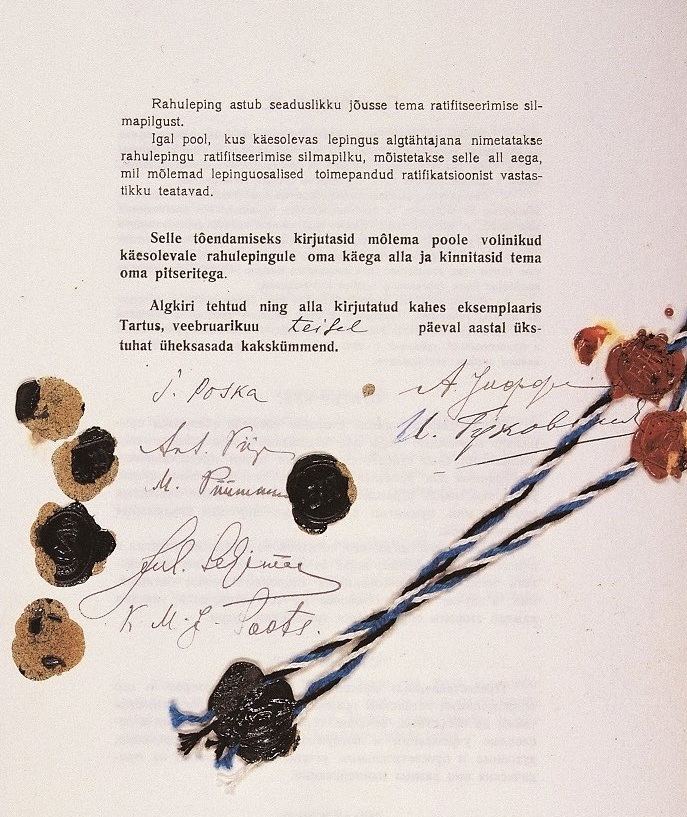 Rahuleping astub seaduslikku jõusse tema ratifitseerimise sil-
mapilgust.
Igal pool, kus käesolevas lepingus algtähtajana nimetatakse
rahulepingu ratifitseerimise silmapilku, mõistetakse selle all aega,
mil mõlemad lepinguosalised toimepandud ratifikatsioonist vastas-
tikku teatavad.
Selle tõendamiseks kirjutasid mõlema poole volinikud
käesolevale rahulepingule oma käega alla ja kinnitasid tema
oma pitseritega.
Algkiri tehtud ning alla kirjutatud kahes eksemplaaris
Tartus, veebruarikuu teisel päeval aastal üks-
tuhat üheksasada kakskümmend.
J. Poska
А. Иоффе
Ant. Piip
И. Гуковский
M. Püümann
Jul. Seljamaa
Soots.